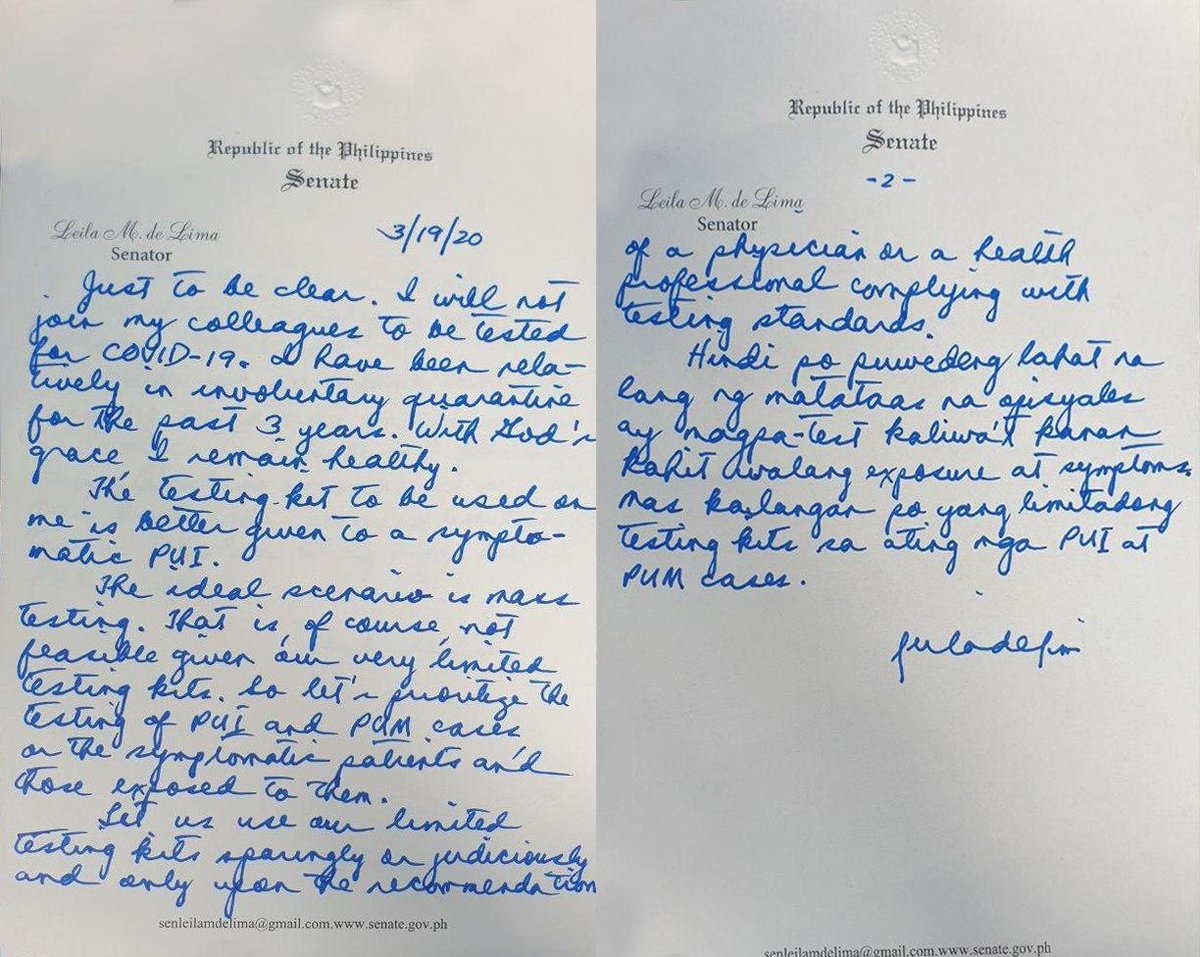 Republic of the Philippines
Senate
Leila M. de Lima
Senator
3/19/20
Just to be clear. I will not
join my colleagues to be tested
for COVID-19. I have been rela-
tively in involuntary quarantine
for the past 3 years. With God's
grace, I remain healthy.
The testing kit to be used on
me is better given to a sympto-
matic PUI.
The ideal scenario is mass
testing. That is, of course, not
feasible given our very limited
testing kits. So let's prioritize the
testing of PUI and PUM cases
or the symptomatic patients and
those exposed to them.
Let us use our limited
testing kits sparingly or judiciously
and only upon the recommendation
senleilamdelima@gmail.com.www.senate.gov.ph
Republic of the Philippines
Senate
-2-
Leila M. de Lima
Senator
of a physician or a health
professional complying with
testing standards.
Hindi po puwedeng lahat na
lang ng matataas na opisyales
ay magpa-test kaliwa't kanan
kahit walang exposure at symptoms.
Mas kailangan po yang limitadong
testing kits sa ating mga PUI at
PUM cases.
senleilamdelima@gmail.com.www.senate.gov.ph